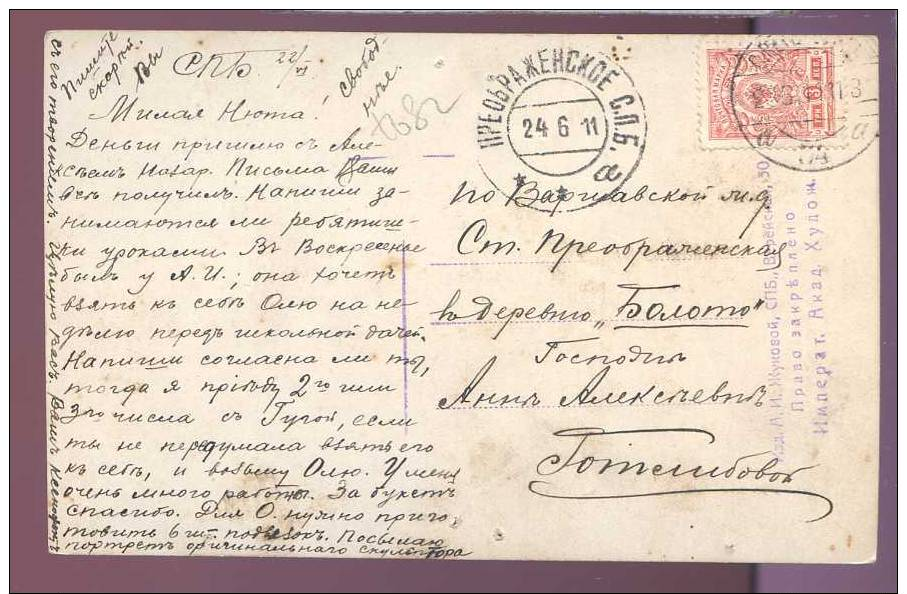 Пишите
скорѣй.
Вы
свобод-
нѣе.
СПБ. 22/VI
Милая Нюта!
Деньги пришлю съ Але-
ксѣемъ Назар. Письма Ваши
всѣ получилъ. Напиши за-
нимаются ли ребятиш-
ки уроками. Въ Воскресенье
былъ у А.И.; она хочетъ
взять къ себѣ Олю на не-
дѣлю передъ школьной дачей.
Напиши согласна ли ты,
тогда я пріѣду 2го или
3го числа съ Гугой, если
ты не передумала взять его
къ себѣ, и возьму Олю. У меня
очень много работы. За букетъ
спасибо. Для О. нужно приго-
товить 6 шт. подвязокъ. Посылаю
портретъ оригинальнаго скульптора
съ его твореніемъ. Цѣлую всѣхъ. Вашъ
ПРЕОБРАЖЕНСКОЕ С.П.Б.
24 6 11
а
по Варшавской ж.д.
Ст. Преображенская
въ деревню „Болото"
Госпожѣ
Аннѣ Алексѣевнѣ
Готлибовой
Изд. А.И. Жуковой, СПБ.,
Право закрѣплено
Императ. Акад. Худож.